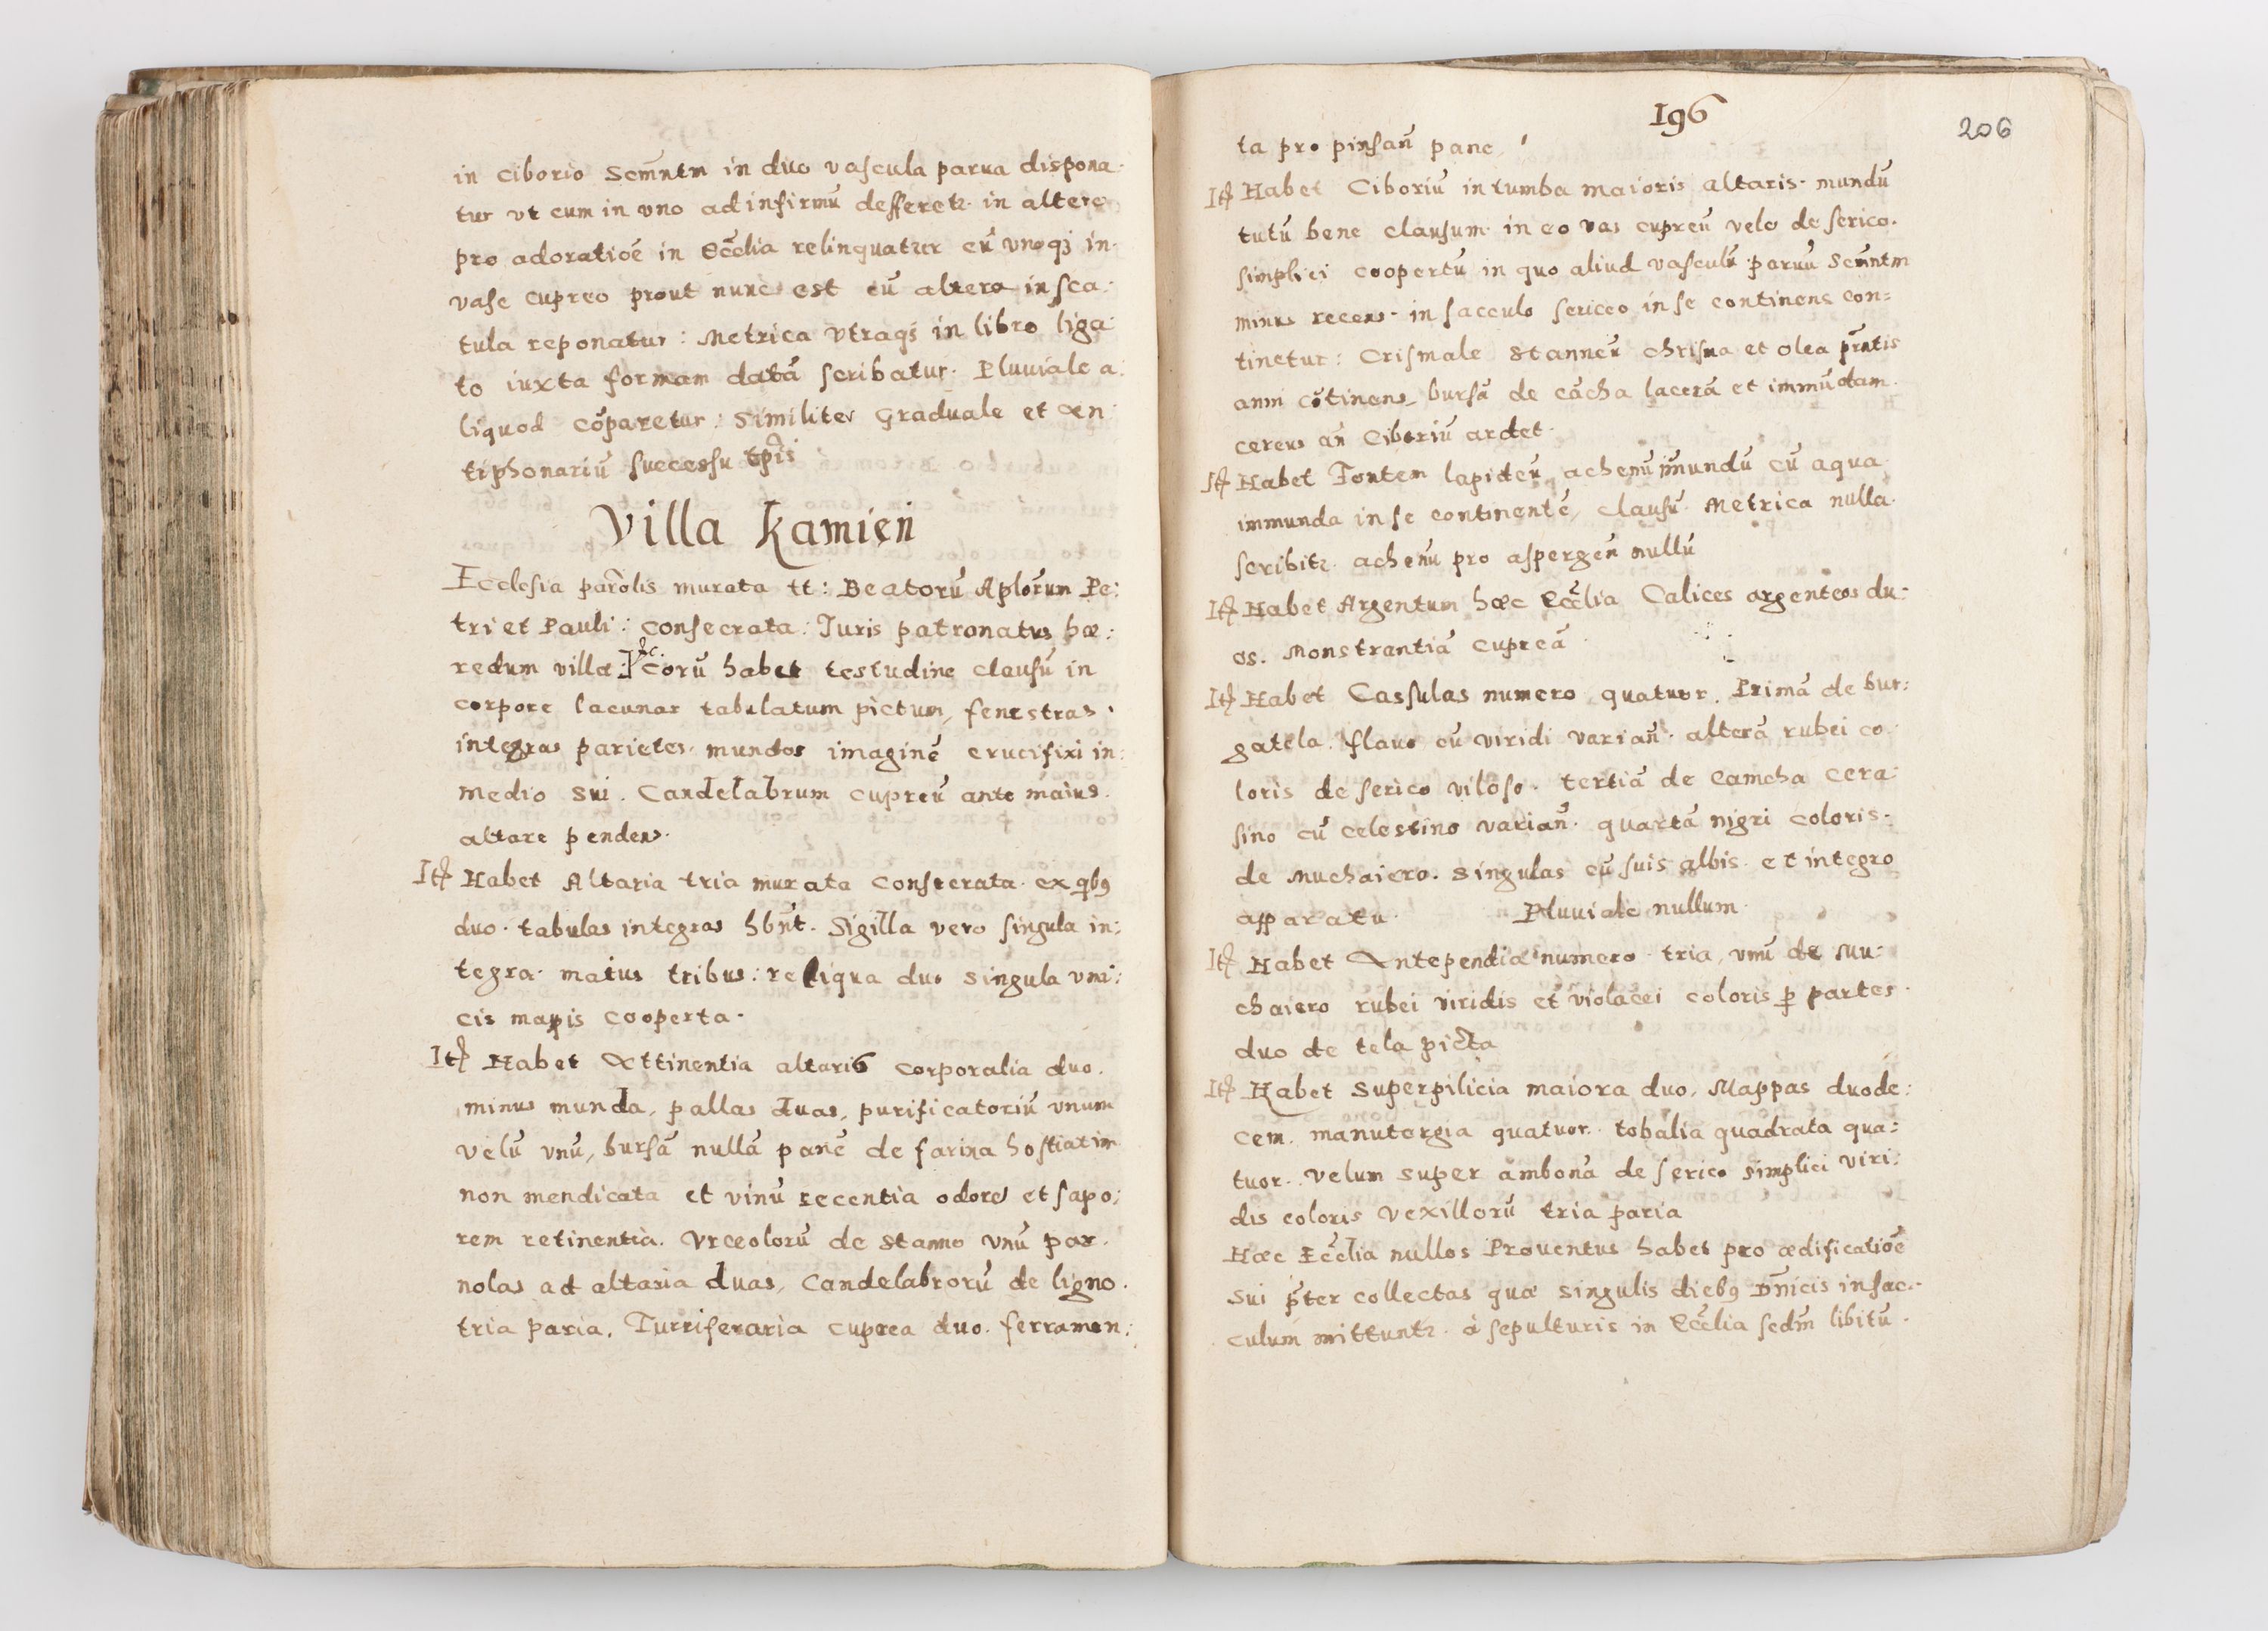 in ciborio Scm̃ntm in duo vascula parua dispona-
tur vt cum in vno ad infirmũ defferetr. in altero
pro adoratiõe in Ecc̃lia relinquatur cũ vnoq3 in-
vase cupreo prout nunc est cũ altero in sca:
tula reponatur: Metrica vtraq3 in libro liga:
to iuxta formam datã scribatur. Pluuiale a:
liquod cõparetur: Similiter Graduale et An
tiphonariũ successu tp̃is
Villa Kamien
Ecclesia parõlis murata tt: Beatorũ Aplõrum Pe:
tri et Pauli: consecrata: Iuris patronatus hæ:
redum villæ &c. corũ habet testudine clausũ in
corpore lacunar tabulatum pictum, fenestras
integras parietes mundos imaginẽ crucifixi in:
medio sui. Candelabrum cupreũ ante maius.
altare pendens.
It Habet Altaria tria murata consecrata ex qb9
duo tabulas integras hbñt. Sigilla vero singula in:
tegra. maius tribus: reliqua duo singula vni:
cis mappis cooperta.
It Habet Attinentia altaris corporalia duo.
minus munda, pallas duas, purificatoriũ vnum
velũ vnũ, bursã nullã panẽ de farina hostiatim
non mendicata et vinũ recentia odores et sapo:
rem retinentia. Vrceolorũ de stanno vnũ par.
nolas ad altaria duas, Candelabrorũ de ligno.
tria paria. Turriferaria cuprea duo. ferramen:
196
206
ta pro pinsañ pane,
It Habet Ciboriũ in tumba maioris altaris mundũ
tutũ bene clausum. in eo vas cupreũ velo de serico.
simplici coopertũ in quo aliud vasculũ paruũ Scm̃ntm
minus recens. in sacculo sericeo in se continens con=
tinetur: Crismale stanneũ chrisma et olea pr̃ntis
anni cõtinens, bursã de cãcha lacerã et immũdam.
cereus añ Ciboriũ ardet.
It Habet Fontem lapideũ achenũ im̃undũ cũ aqua
immunda in se continentẽ, clausũ. Metrica nulla
scribitr. achenũ pro aspergeñ nullũ
It Habet Argentum hæc Ecc̃lia Calices argenteos du:
os. Monstrantiã cupreã
It Habet Cassulas numero quatuor. Primã de bur:
gatela. flauo cũ viridi variañ. alterã rubei co
loris de serico viloso. tertiã de camcha cera:
sino cũ celestino variañ. quartã nigri coloris.
de muchaiero. Singulas cũ suis albis et integro
apparatu. Pluuiale nullum
It Habet Antependia numero tria, vnũ de mu:
chaiero rubei viridis et violacei coloris p partes.
duo de tela picta
It Habet Superpilicia maiora duo, Mappas duode:
cem. manutergia quatuor. tobalia quadrata qua:
tuor. Velum super ambonã de serico simplici viri:
dis coloris Vexillorũ tria paria
Hæc Ecc̃lia nullos Prouentus habet pro ædificatiõe
sui p̃ter collectas quæ singulis dieb9 Dñicis in sac-
culum mittuntr. à sepulturis in Ecc̃lia sedm̃ libitũ.